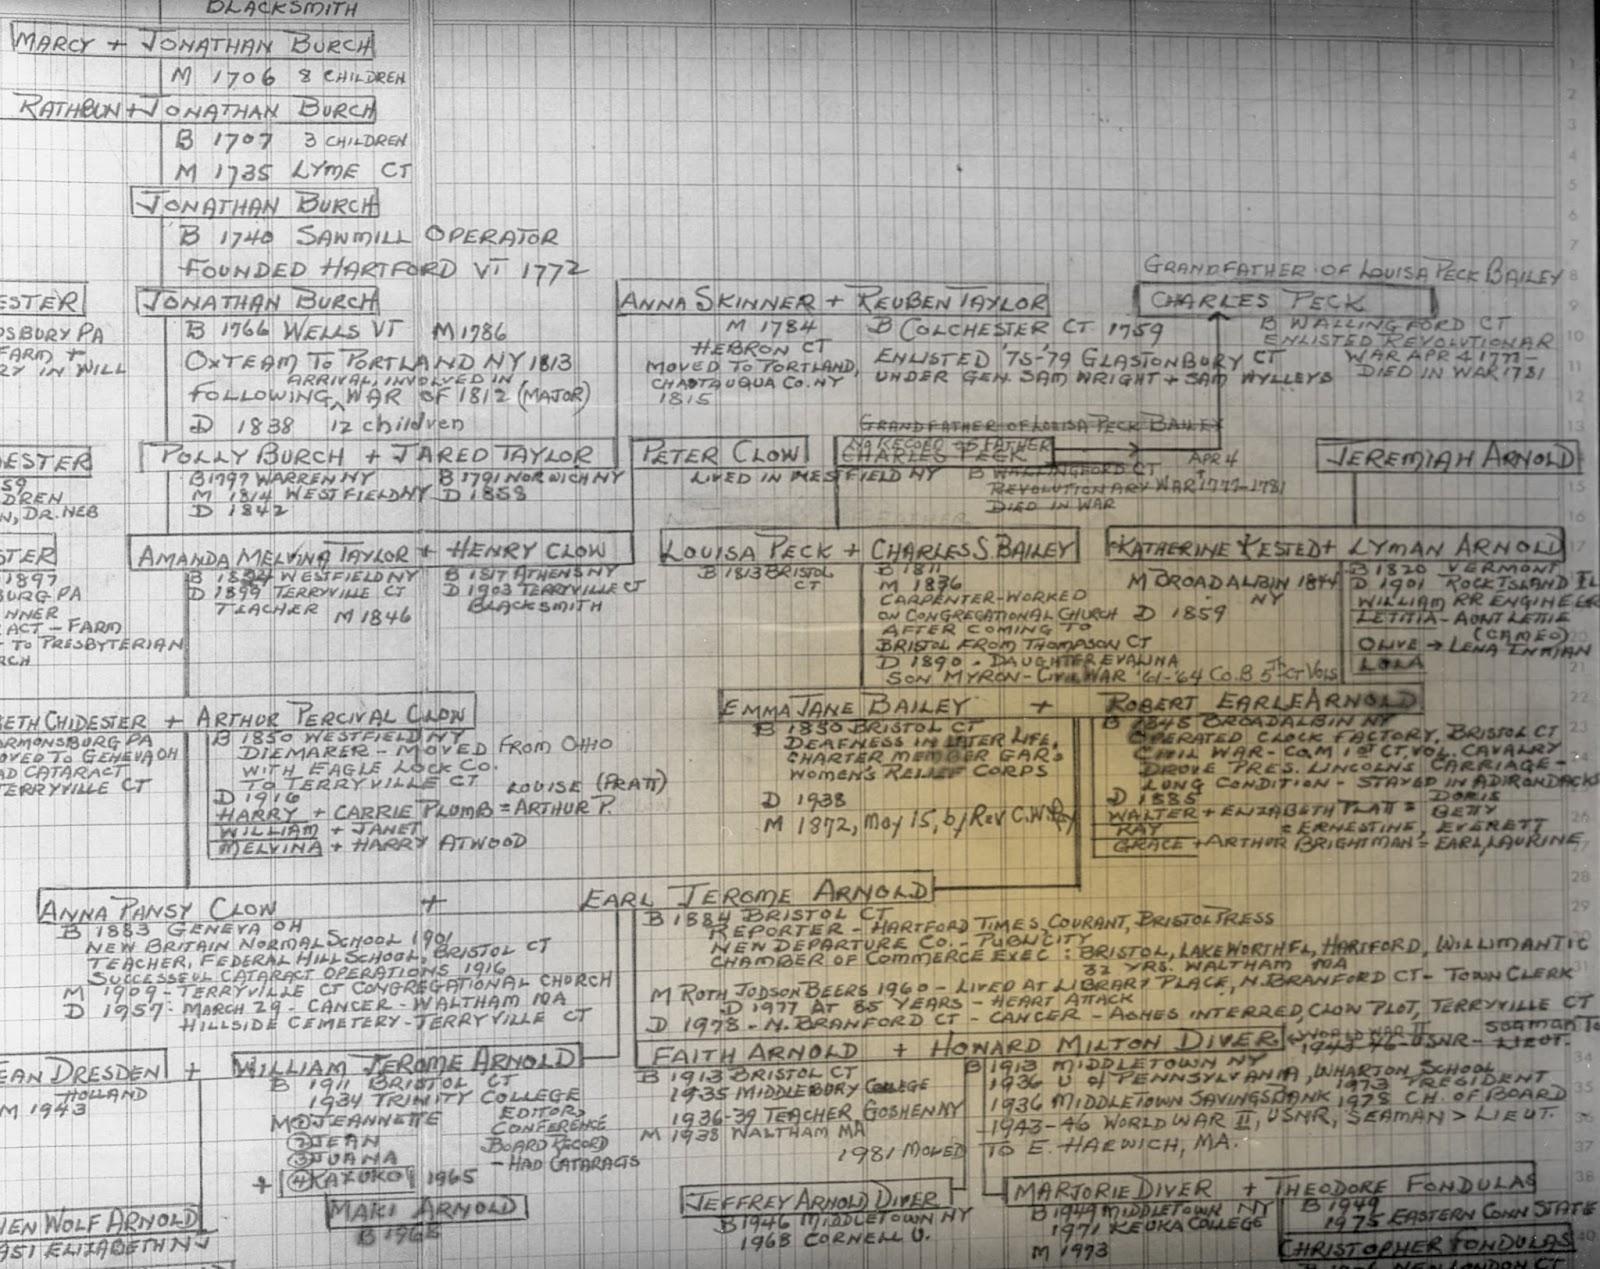 BLACKSMITH
MARCY + JONATHAN BURCH
M 1706 8 CHILDREN
RATHBUN + JONATHAN BURCH
B 1707 3 CHILDREN
M 1735 LYME CT
JONATHAN BURCH
B 1740 SAWMILL OPERATOR
FOUNDED HARTFORD VT 1772
JONATHAN BURCH
B 1766 WELLS VT M 1786
OXTEAM TO PORTLAND NY 1813
ARRIVAL, INVOLVED IN
FOLLOWING WAR OF 1812 (MAJOR)
D 1838 12 children
ANNA SKINNER + REUBEN TAYLOR
M 1784 B COLCHESTER CT 1759
HEBRON CT ENLISTED '75-'79 GLASTONBURY CT
MOVED TO PORTLAND, UNDER GEN. SAM WRIGHT + SAM WYLLEYS
CHAUTAUQUA CO. NY
1815
GRANDFATHER OF LOUISA PECK BAILEY
CHARLES PECK
B WALLINGFORD CT
ENLISTED REVOLUTIONAR
WAR APR 4 1777-
DIED IN WAR 1781
ESTER
DSBURY PA
FARM +
RY IN WILL
POLLY BURCH + JARED TAYLOR
B 1797 WARREN NY B 1791 NORWICH NY
M 1814 WESTFIELD NY D 1858
D 1842
PETER CLOW
LIVED IN WESTFIELD NY
GRANDFATHER OF LOUISA PECK BAILEY
NO RECORD OF FATHER
CHARLES PECK
B WALLINGFORD CT APR 4
REVOLUTIONARY WAR 1777-1781
DIED IN WAR
JEREMIAH ARNOLD
ESTER
59
DREN
N, DR. NEB
AMANDA MELVINA TAYLOR + HENRY CLOW
B 1824 WESTFIELD NY B 1817 ATHENS NY
D 1899 TERRYVILLE CT D 1903 TERRYVILLE CT
TEACHER M 1846 BLACKSMITH
LOUISA PECK + CHARLES S BAILEY
B 1813 BRISTOL CT
B 1811
M 1836
CARPENTER-WORKED
ON CONGREGATIONAL CHURCH
AFTER COMING TO
BRISTOL FROM THOMPSON CT
D 1890 - DAUGHTER EVALINA
SON MYRON - CIVIL WAR '61-'64 CO. B 5TH CT VOLS
KATHERINE KESTED + LYMAN ARNOLD
M BROADALBIN 1844
NY
D 1859
B 1820 VERMONT
D 1901 ROCK ISLAND IL
WILLIAM RR ENGINEER
LETITIA - AUNT LETTIE
(CAMEO)
OLIVE → LENA INMAN
LOLA
STER
1897
BURG PA
NNER
ACT - FARM
T TO PRESBYTERIAN
RCH
BETH CHIDESTER + ARTHUR PERCIVAL CLOW
ORMONSBURG PA
OVED TO GENEVA OH
AD CATARACT
TERRYVILLE CT
B 1850 WESTFIELD NY
DIEMAKER - MOVED FROM OHIO
WITH EAGLE LOCK CO.
TO TERRYVILLE CT LOUISE (PRATT)
D 1916
HARRY + CARRIE PLUMB = ARTHUR P.
WILLIAM + JANET
MELVINA + HARRY ATWOOD
EMMA JANE BAILEY + ROBERT EARLE ARNOLD
B 1850 BRISTOL CT
DEAFNESS IN LATER LIFE,
CHARTER MEMBER GAR
WOMEN'S RELIEF CORPS
D 1938
M 1872, May 15, by Rev C.W.
B 1845 BROADALBIN NY
OPERATED CLOCK FACTORY, BRISTOL CT
CIVIL WAR - CO. M 1ST CT. VOL. CAVALRY
DROVE PRES. LINCOLN'S CARRIAGE -
LUNG CONDITION - STAYED IN ADIRONDACKS
D 1885 DORIS
WALTER + ELIZABETH PLATT = BETTY
RAY = ERNESTINE, EVERETT
GRACE + ARTHUR BRIGHTMAN = EARL, LAURINE
ANNA PANSY CLOW + EARL JEROME ARNOLD
B 1883 GENEVA OH
NEW BRITAIN NORMAL SCHOOL 1901
TEACHER, FEDERAL HILL SCHOOL, BRISTOL CT
SUCCESSFUL CATARACT OPERATIONS 1916
M 1909 - TERRYVILLE CT CONGREGATIONAL CHURCH
D 1957 - MARCH 29 - CANCER - WALTHAM MA
HILLSIDE CEMETERY - TERRYVILLE CT
B 1884 BRISTOL CT
REPORTER - HARTFORD TIMES, COURANT, BRISTOL PRESS
NEW DEPARTURE CO. - PUBLICITY
CHAMBER OF COMMERCE EXEC: BRISTOL, LAKE WORTH FL, HARTFORD, WILLIMANTIC
32 YRS. WALTHAM MA
M RUTH JUDSON BEERS 1960 - LIVED AT LIBRARY PLACE, N. BRANFORD CT - TOWN CLERK
D 1977 AT 85 YEARS - HEART ATTACK
D 1978 - N. BRANFORD CT - CANCER - ASHES INTERRED, CLOW PLOT, TERRYVILLE CT
EAN DRESDEN + WILLIAM JEROME ARNOLD
HOLLAND
M 1943
B 1911 BRISTOL CT
1934 TRINITY COLLEGE
M ① JEANNETTE EDITOR,
② JEAN CONFERENCE
③ JUANA BOARD RECORD
- HAD CATARACTS
+ ④ KAZUKO 1965
MAKI ARNOLD
B 1965
HEN WOLF ARNOLD
1951 ELIZABETH NJ
FAITH ARNOLD + HOWARD MILTON DIVER
WORLD WAR II SEAMAN TO
1943-46 - USNR - LIEUT.
B 1913 BRISTOL CT
1935 MIDDLEBURY COLLEGE
1936-39 TEACHER GOSHEN NY
M 1938 WALTHAM MA
B 1913 MIDDLETOWN NY
1936 U of PENNSYLVANIA, WHARTON SCHOOL
1973 PRESIDENT
1936 MIDDLETOWN SAVINGS BANK 1978 CH. OF BOARD
1943-46 WORLD WAR II, USNR, SEAMAN > LIEUT.
1981 MOVED TO E. HARWICH, MA.
JEFFREY ARNOLD DIVER
B 1946 MIDDLETOWN NY
1968 CORNELL U.
MARJORIE DIVER + THEODORE FONDULAS
B 1949 MIDDLETOWN NY B 1949
1971 KEUKA COLLEGE 1975 EASTERN CONN STATE
M 1973
CHRISTOPHER FONDULAS
NEW LONDON CT